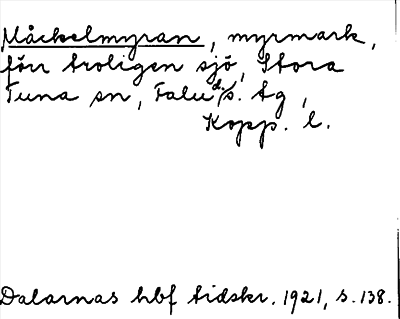 Måckelmyran, myrmark,
förr troligen sjö, Stora
Tuna sn, Falu d.s. tg,
Kopp. l.
Dalarnas hbf tidskr. 1921, s. 138.